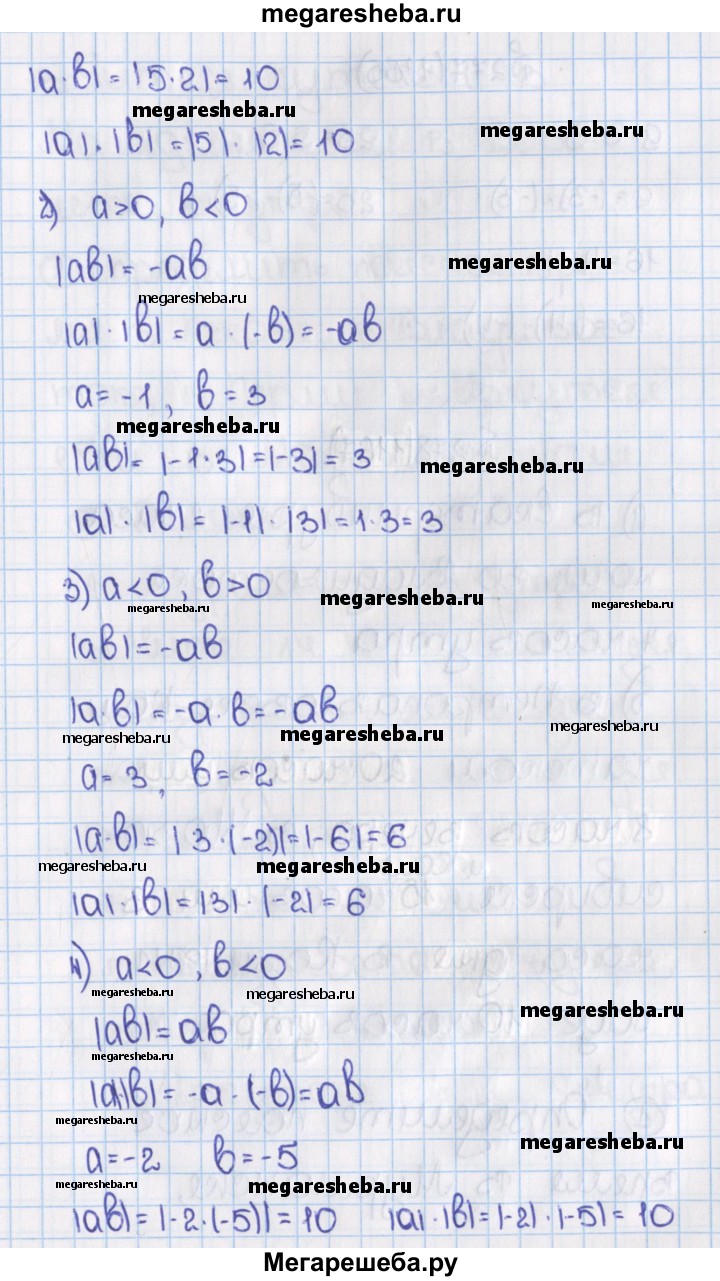 megaresheba.ru
|a·b| = |5·2| = 10
megaresheba.ru
megaresheba.ru
|a|·|b| = |5|·|2| = 10
2) a>0, b<0
|ab| = -ab
megaresheba.ru
megaresheba.ru
|a|·|b| = a·(-b) = -ab
a = -1, b = 3
megaresheba.ru
|ab| = |-1·3| = |-3| = 3
megaresheba.ru
|a|·|b| = |-1|·|3| = 1·3 = 3
3) a<0, b>0
megaresheba.ru
megaresheba.ru
megaresheba.ru
|ab| = -ab
|a·b| = -a·b = -ab
megaresheba.ru
megaresheba.ru
megaresheba.ru
a = 3, b = -2
|a·b| = |3·(-2)| = |-6| = 6
megaresheba.ru
megaresheba.ru
|a|·|b| = |3|·|-2| = 6
4) a<0, b<0
megaresheba.ru
megaresheba.ru
megaresheba.ru
|ab| = ab
megaresheba.ru
|a|·|b| = -a·(-b) = ab
megaresheba.ru
megaresheba.ru
a = -2 b = -5
megaresheba.ru
megaresheba.ru
|ab| = |-2·(-5)| = 10 |a|·|b| = |-2|·|-5| = 10
Мегарешеба.ру